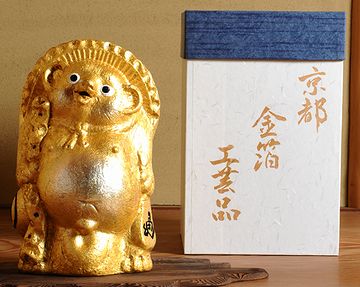 京都
金箔
工芸品